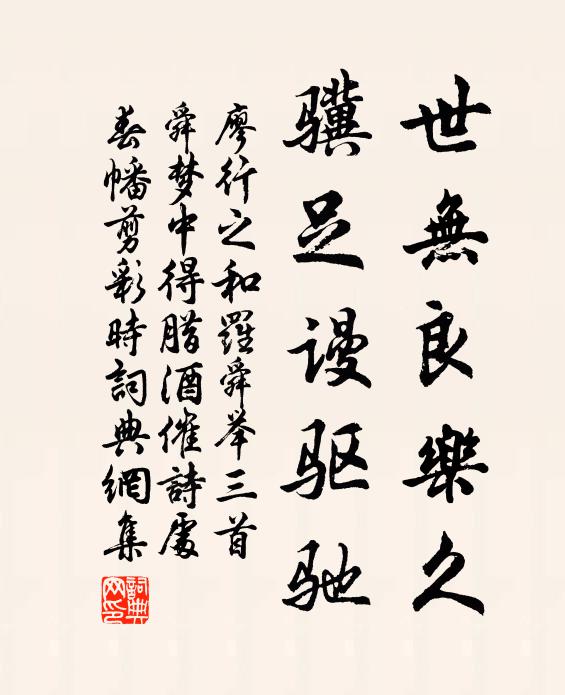 世無良樂久
骥足谩驱驰
廖行之和羅舜举三首
舜梦中得腊酒催詩處
春幡剪彩時詞典網集
詞典网印